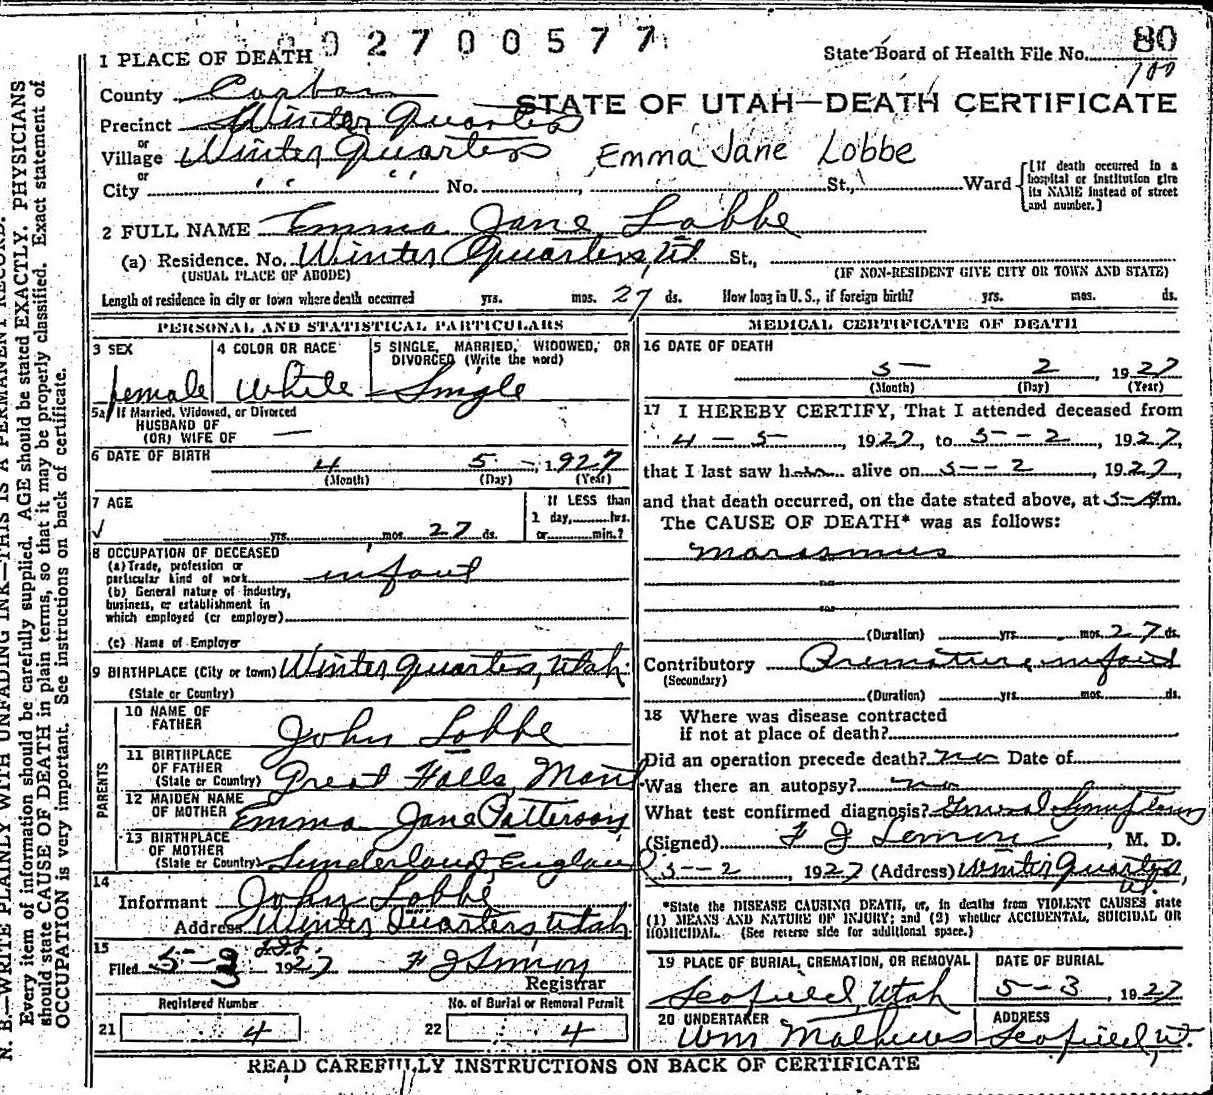 0 0 2 7 0 0 5 7 7
State Board of Health File No. 80
100
1 PLACE OF DEATH
County Carbon
STATE OF UTAH—DEATH CERTIFICATE
Precinct Winter Quarters
or
Village Winter Quarters Emma Jane Lobbe
or
City " " No. St., Ward
[If death occurred in a hospital or institution give its NAME instead of street and number.]
2 FULL NAME Emma Jane Lobbe
(a) Residence. No. Winter Quarters, Ut St.,
(USUAL PLACE OF ABODE) (IF NON-RESIDENT GIVE CITY OR TOWN AND STATE)
Length of residence in city or town where death occurred yrs. mos. 27 ds. How long in U. S., if foreign birth? yrs. mos. ds.
PERSONAL AND STATISTICAL PARTICULARS
3 SEX 4 COLOR OR RACE 5 SINGLE, MARRIED, WIDOWED, OR
DIVORCED (Write the word)
female White Single
5a If Married, Widowed, or Divorced
HUSBAND OF
(OR) WIFE OF —
6 DATE OF BIRTH 4 5 1927
(Month) (Day) (Year)
7 AGE If LESS than
1 day, hrs.
yrs. mos. 27 ds. or min.?
8 OCCUPATION OF DECEASED
(a) Trade, profession or
particular kind of work infant
(b) General nature of industry,
business, or establishment in
which employed (or employer)
(c) Name of Employer
9 BIRTHPLACE (City or town) Winter Quarters, Utah
(State or Country)
PARENTS
10 NAME OF
FATHER John Lobbe
11 BIRTHPLACE
OF FATHER
(State or Country) Great Falls, Mont
12 MAIDEN NAME
OF MOTHER Emma Jane Patterson
13 BIRTHPLACE
OF MOTHER
(State or Country) Sunderland, England
14
Informant John Lobbe
Address Winter Quarters, Utah
15
Filed 5-3 1927 F J Lemon
Registrar
Registered Number No. of Burial or Removal Permit
21 4 22 4
MEDICAL CERTIFICATE OF DEATH
16 DATE OF DEATH
5 2 1927
(Month) (Day) (Year)
17 I HEREBY CERTIFY, That I attended deceased from
4 - 5 -, 1927, to 5 - 2, 1927,
that I last saw h alive on 5 - 2, 1927,
and that death occurred, on the date stated above, at 5 A m.
The CAUSE OF DEATH* was as follows:
Marasmus
(Duration) yrs. mos. 27 ds.
Contributory Premature infant
(Secondary)
(Duration) yrs. mos. ds.
18 Where was disease contracted
if not at place of death?
Did an operation precede death? no Date of
Was there an autopsy? no
What test confirmed diagnosis? General Symptoms
(Signed) F J Lemon, M. D.
5-2, 1927 (Address) Winter Quarters, Ut.
*State the DISEASE CAUSING DEATH, or, in deaths from VIOLENT CAUSES state
(1) MEANS AND NATURE OF INJURY; and (2) whether ACCIDENTAL, SUICIDAL OR
HOMICIDAL. (See reverse side for additional space.)
19 PLACE OF BURIAL, CREMATION, OR REMOVAL DATE OF BURIAL
Scofield, Utah 5-3, 1927
20 UNDERTAKER ADDRESS
Wm Mathews Scofield, Ut.
READ CAREFULLY INSTRUCTIONS ON BACK OF CERTIFICATE
N. B.—WRITE PLAINLY WITH UNFADING INK—THIS IS A PERMANENT RECORD.
Every item of information should be carefully supplied. AGE should be stated EXACTLY. PHYSICIANS
should state CAUSE OF DEATH in plain terms, so that it may be properly classified. Exact statement of
OCCUPATION is very important. See instructions on back of certificate.